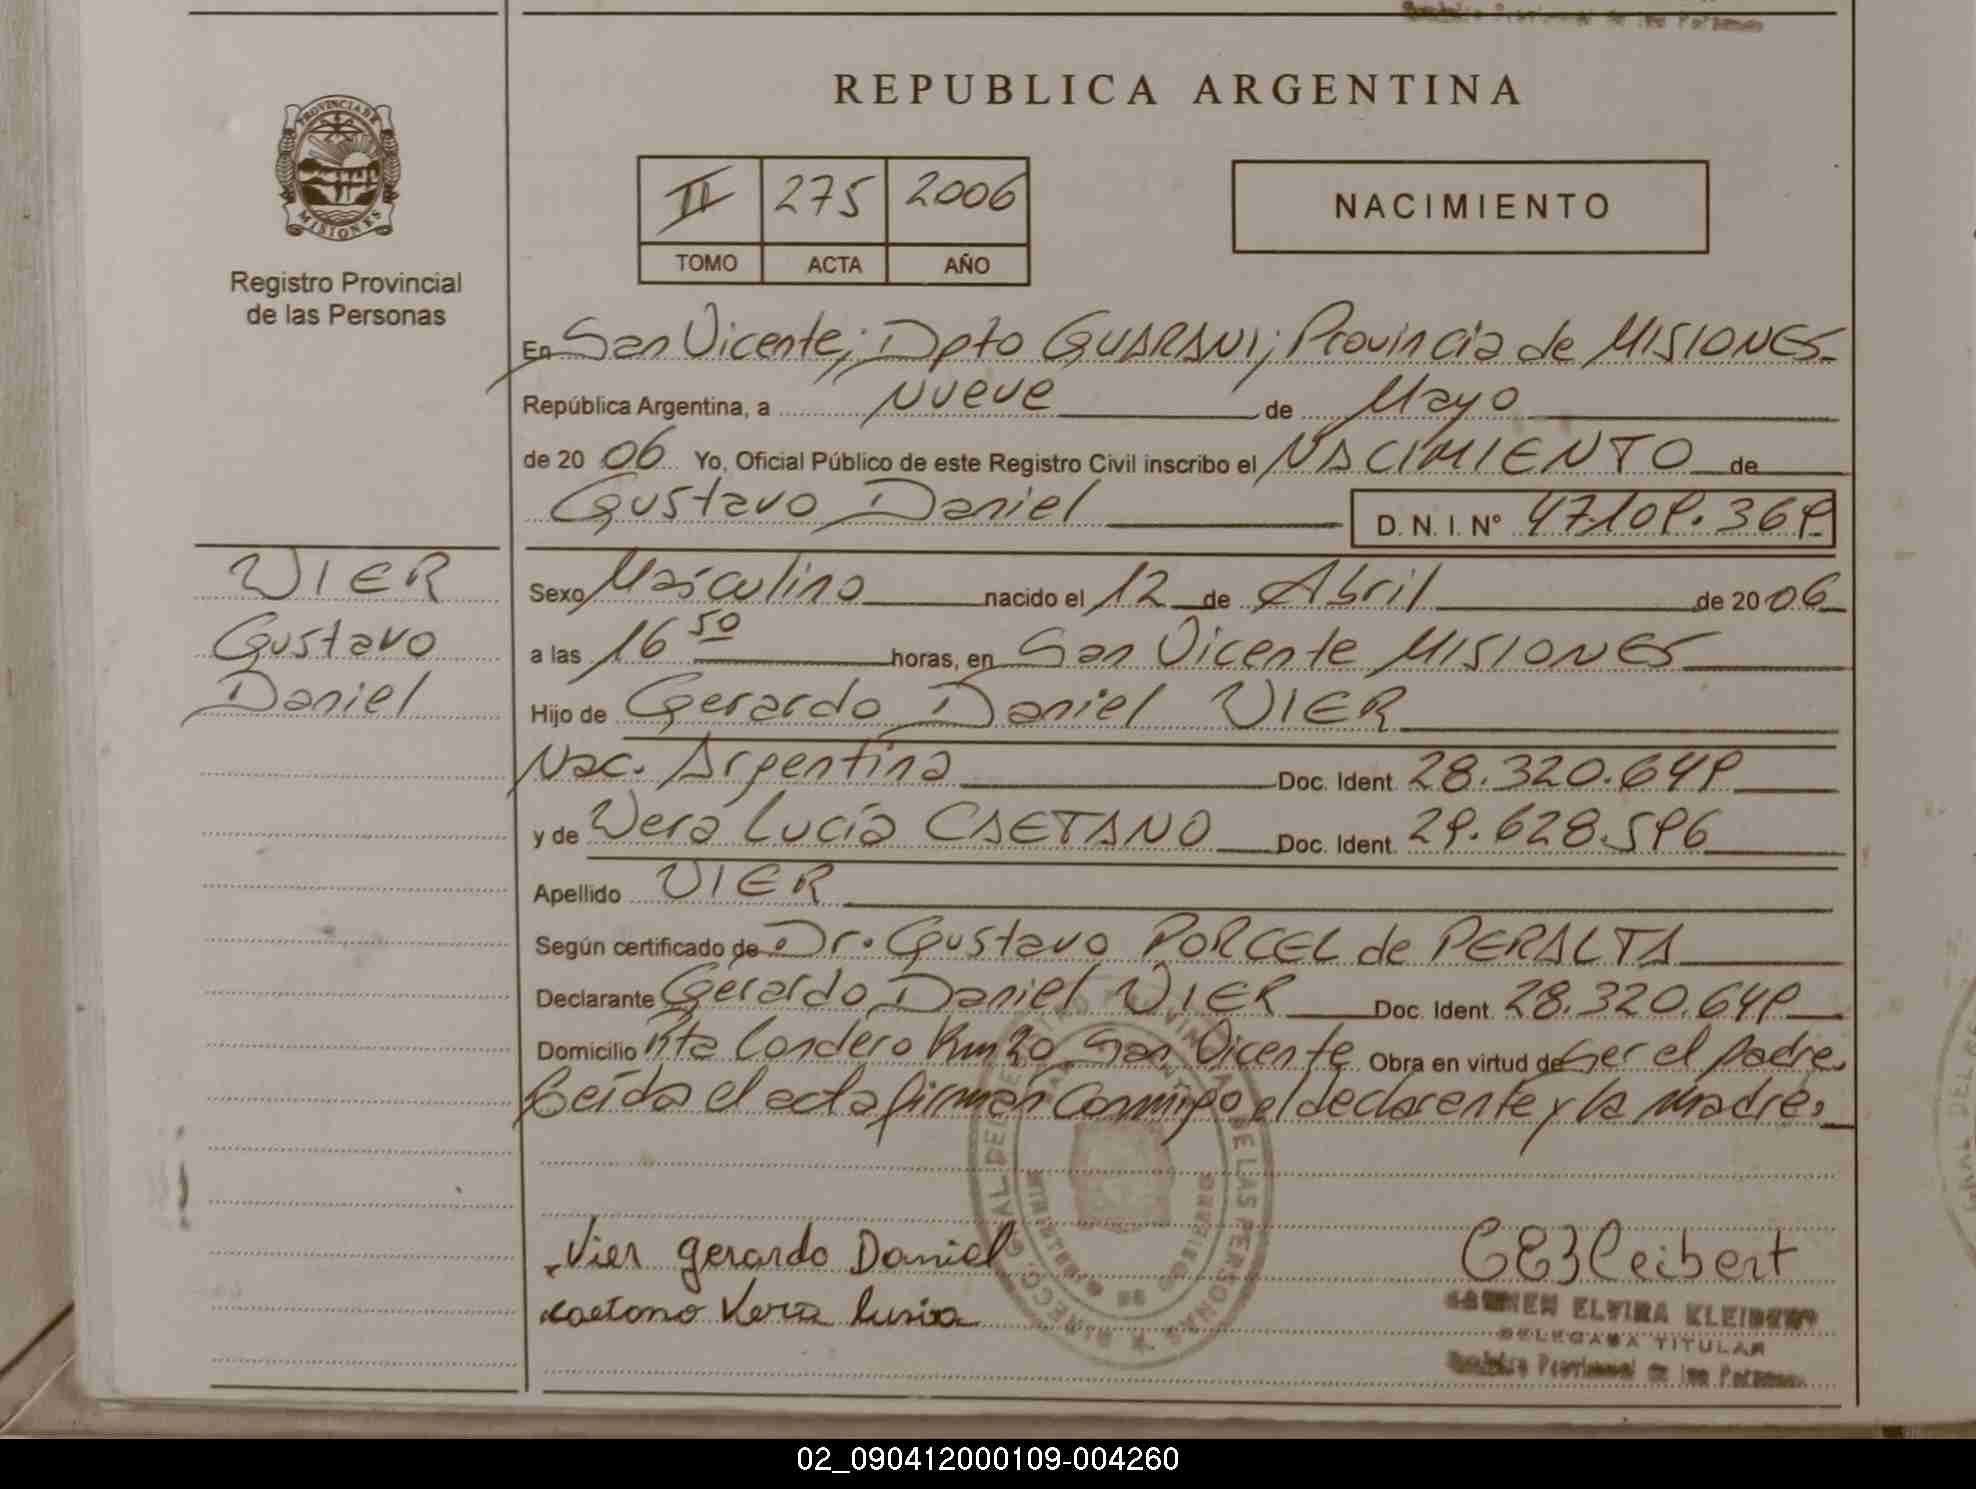 REPUBLICA ARGENTINA
PROVINCIA DE
MISIONES
Registro Provincial
de las Personas
II 275 2006
TOMO ACTA AÑO
NACIMIENTO
En San Vicente; Dpto GUARANI; Provincia de MISIONES
República Argentina, a Nueve de Mayo
de 2006 Yo, Oficial Público de este Registro Civil inscribo el NACIMIENTO de
Gustavo Daniel D. N. I. Nº 47.109.369
VIER
Gustavo
Daniel
Sexo Masculino nacido el 12 de Abril de 2006
a las 16 50 horas, en San Vicente MISIONES
Hijo de Gerardo Daniel VIER
Nac. Argentina Doc. Ident. 28.320.649
y de Vera Lucía CAETANO Doc. Ident. 29.628.596
Apellido VIER
Según certificado de Dr. Gustavo PORCEL de PERALTA
Declarante Gerardo Daniel VIER Doc. Ident. 28.320.649
Domicilio Km 20 San Vicente Obra en virtud de Ser el padre.
Leída el acta firman Conmigo el declarente y la Madre.
Vier Gerardo Daniel
Caetano Vera Lusia
CEKleibert
CARMEN ELVIRA KLEIBERT
DELEGADA TITULAR
Registro Provincial de las Personas
02_090412000109-004260